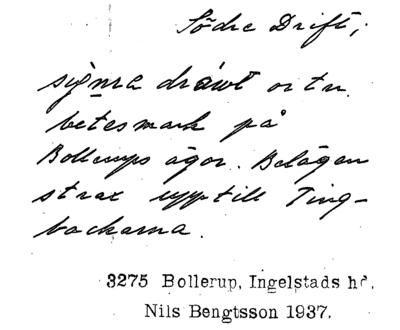 Södre Drift;
betesmark på
Bollerups ägor. Belägen
strax upp till Ting-
backarna.
3275 Bollerup, Ingelstads hd.
Nils Bengtsson 1937.